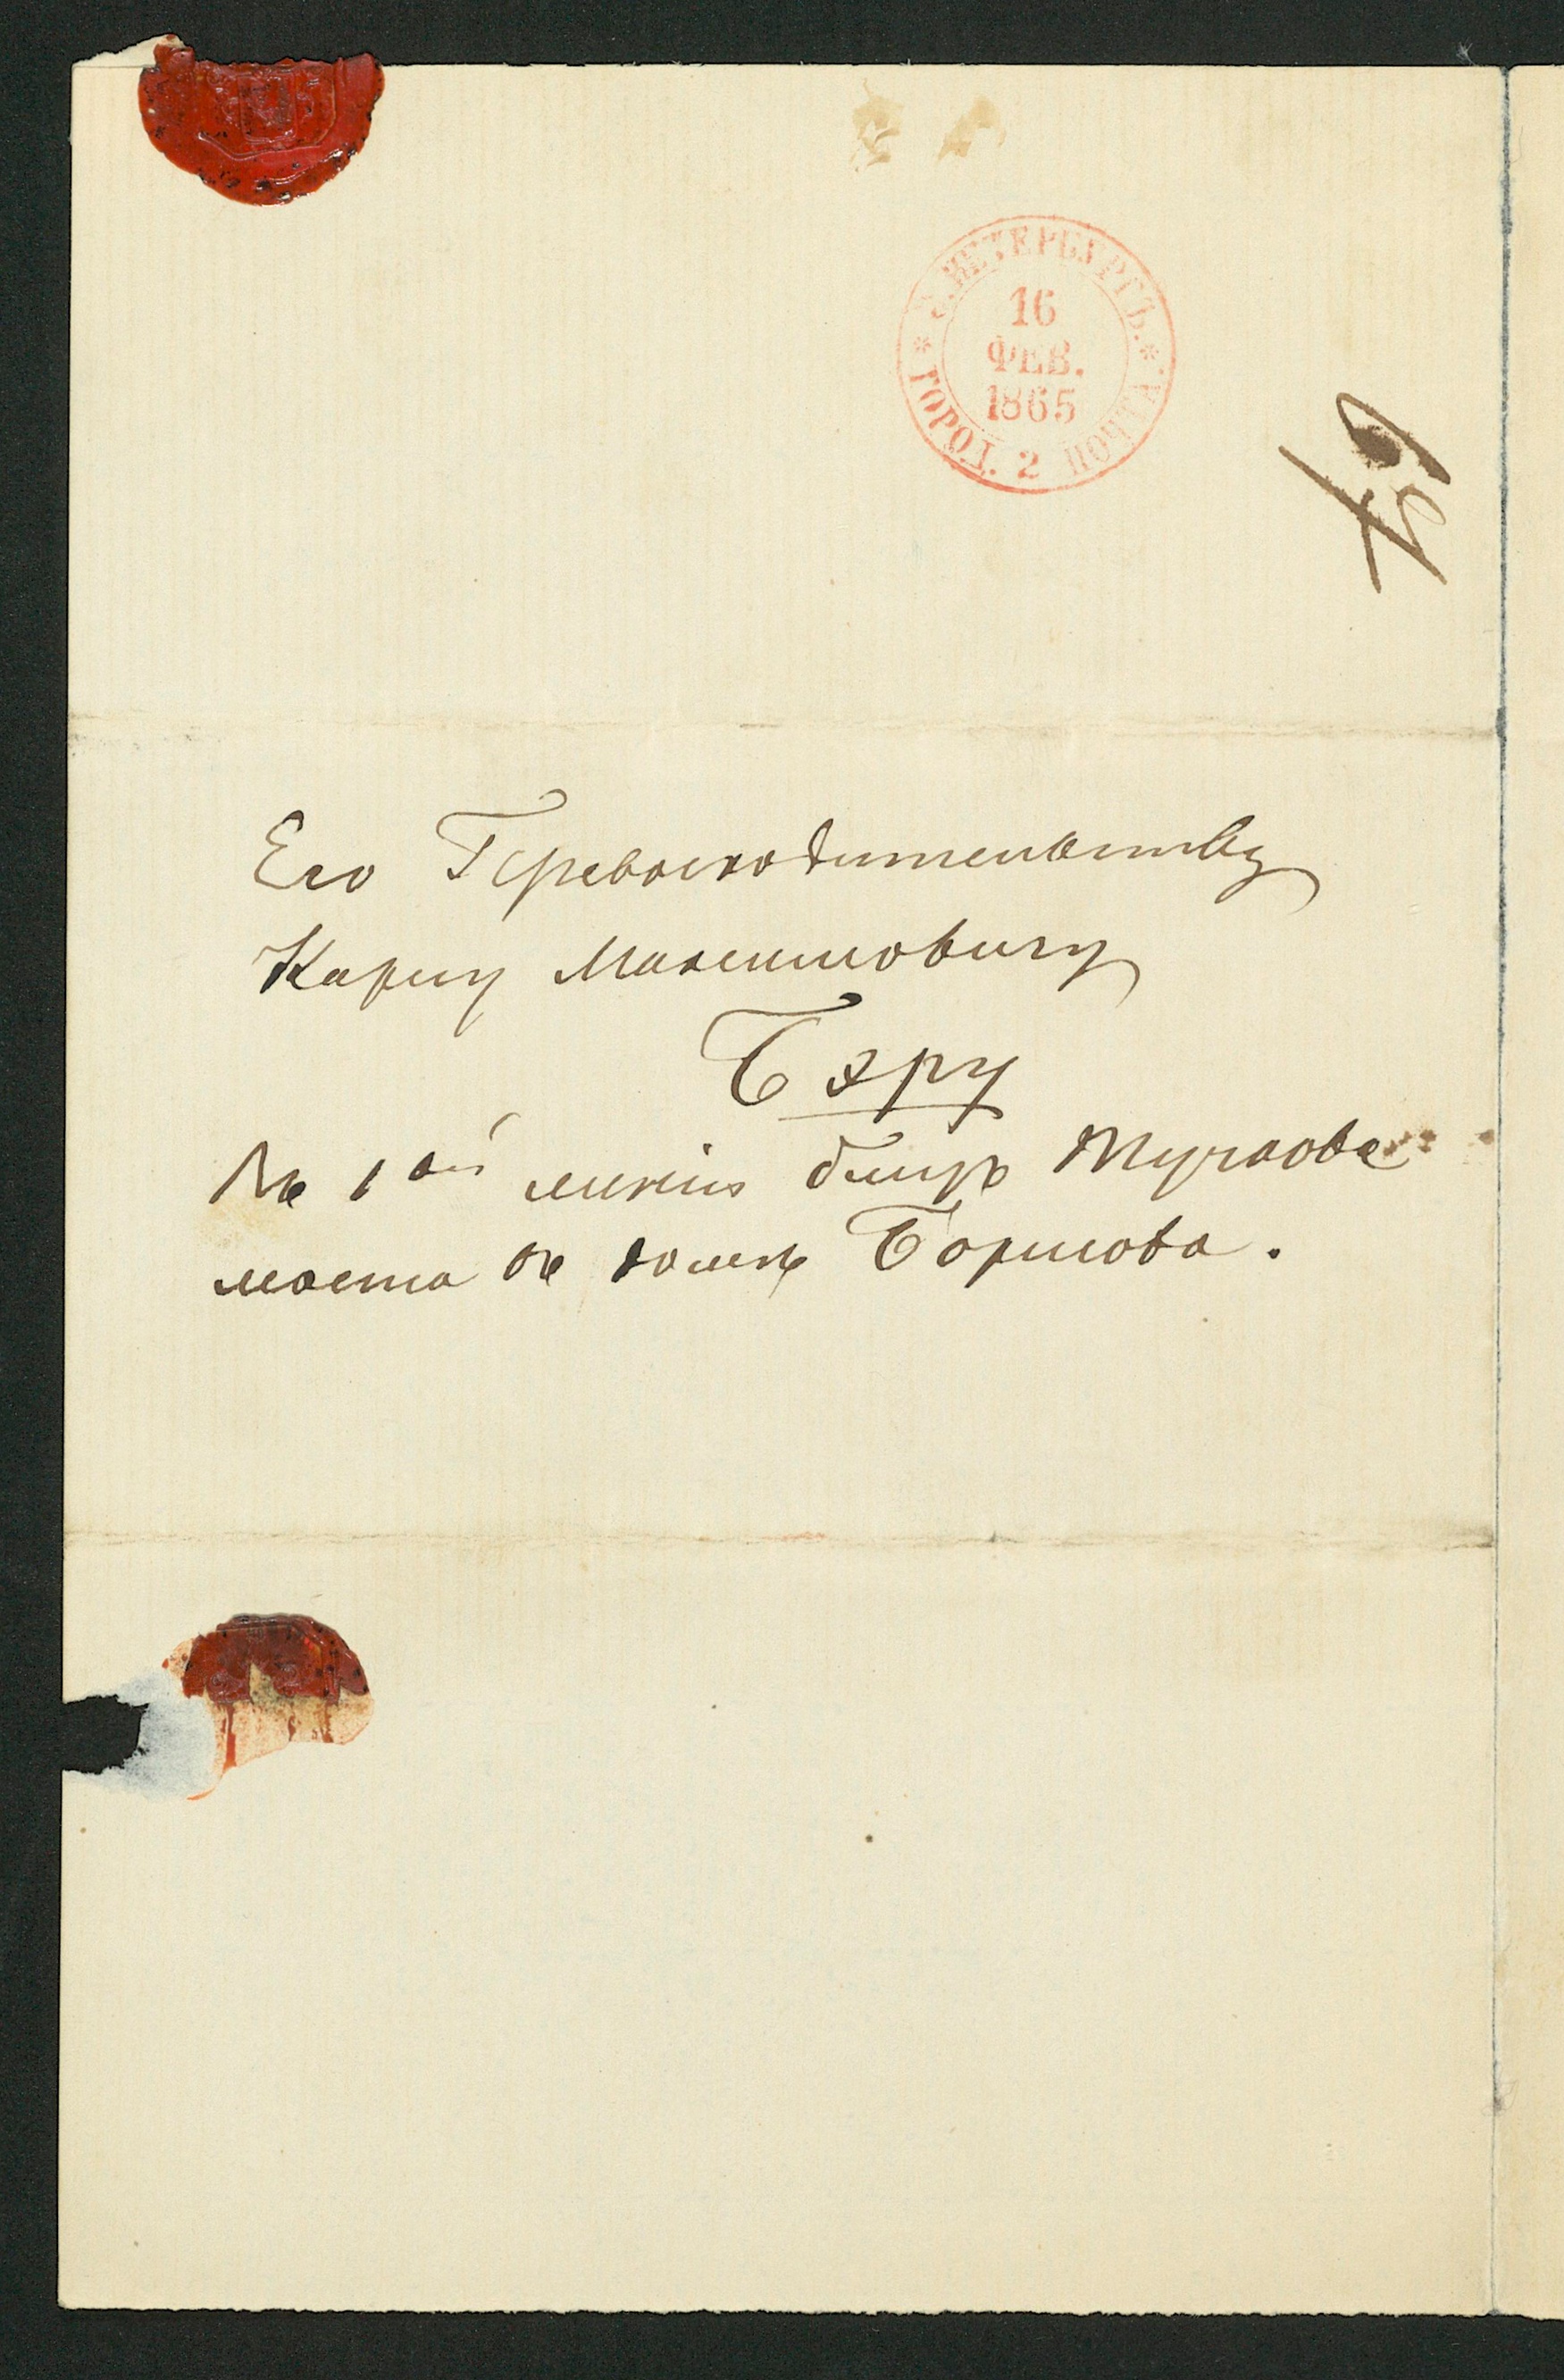 С.ПЕТЕРБУРГЪ.
16
ФЕВ.
1865
ГОРОД. 2 ПОЧТА.
Его Превосходительству
Карлу Максимовичу
Бэру
Въ 1ой линіи близъ Тучкова
моста въ домѣ Борисова.